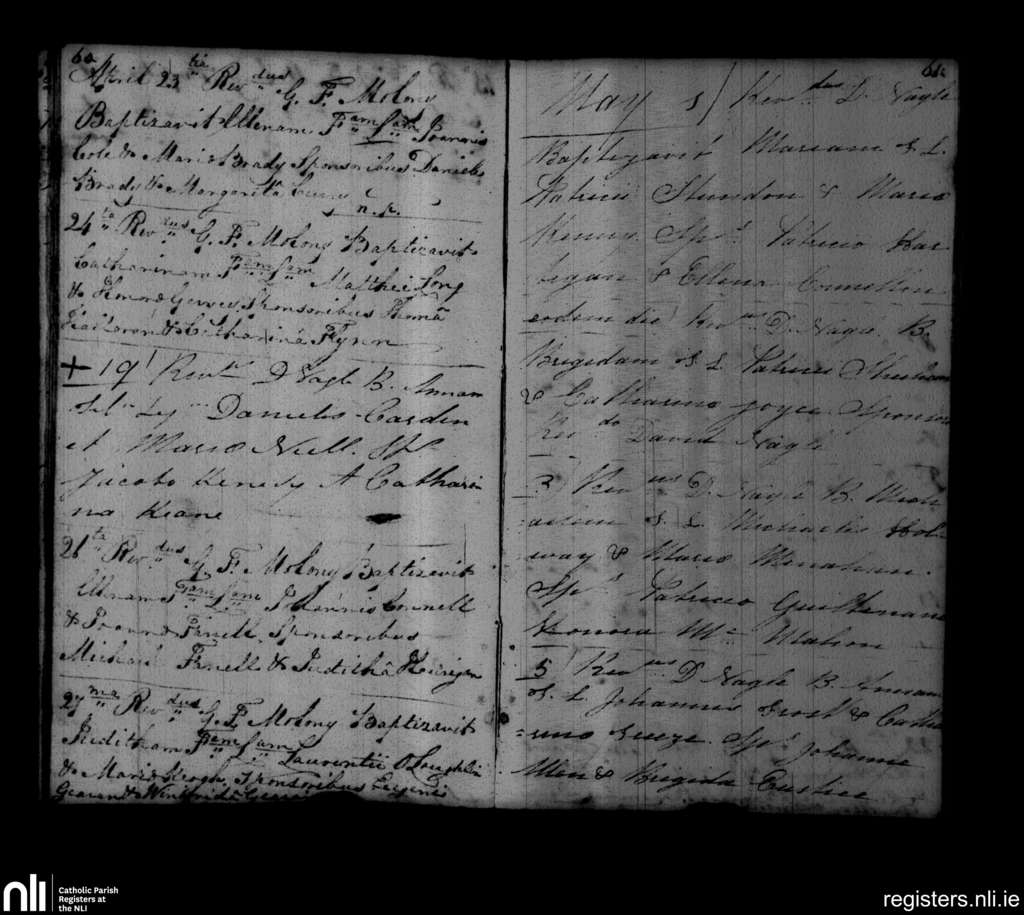 60
April 23 tia Rev dus G. F. Molony
Baptizavit Ellenam F am L am Joannis
Cole & Maria Brady Sponsoribus Daniele
Brady & Margarita
n.p.
24 ta Rev dus G. F. Molony Baptizavit
Catharinam F am L am Matthei Long
& Honora Sponsoribus Thoma
& Catharina Flynn
+ 19 Revd. D Nagle B. Annam
fil Ly Danielis Carden
et Maria Niell. Sp
Jacobo Kenedy & Cathari
na Keane
26 ta Rev dus G. F Molony Baptizavit
Ellenam F am L am Joannis Connell
& Joanna Farrell Sponsoribus
Michael Farrell & Juditha
27 ma Rev dus G. F Molony Baptizavit
Juditham F am L am Laurentii O'Loughlin
& Maria Keogh Sponsoribus Eugenio
& Winifrida
61
May 1 Rev dus D. Nagle
Baptizavit Mariam f. L.
Patricii & Maria
Kenny. Sps. Patricio Har
tegan & Ellena Connellon
eodem die Rev us D. Nagle B.
Brigidam f. L Patricii Sheehan
& Catharina Joyce. Sponsor
Rev do David Nagle
3 Rev us D. Nagle B. Mich
aelem f. L. Michaelis Hol
way & Maria Minahan.
Sps. Patricio
Honora Mc Mahon
5 Rev us D Nagle B. Annam
f. L. Johannis Frost & Catha
rina Sps. Johanne
Allen & Brigida
nli
Catholic Parish
Registers at
the NLI
registers.nli.ie